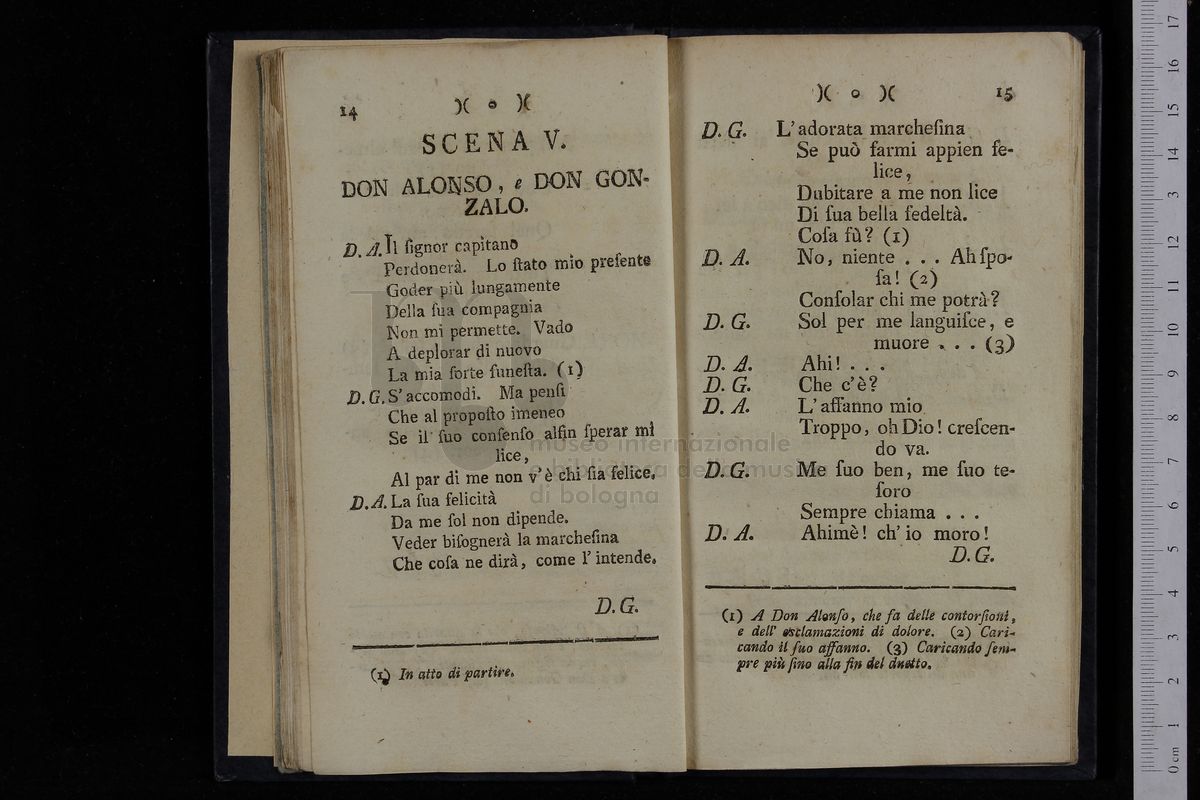 14 )( o )(
SCENA V.
DON ALONSO, e DON GON-
ZALO.
D. A. Il ſignor capitano
Perdonerà. Lo ſtato mio preſente
Goder più lungamente
Della ſua compagnia
Non mi permette. Vado
A deplorar di nuovo
La mia ſorte funeſta. (1)
D. G. S' accomodi. Ma penſi
Che al propoſto imeneo
Se il ſuo conſenſo alfin ſperar mi
lice,
Al par di me non v' è chi ſia felice.
D. A. La ſua felicità
Da me ſol non dipende.
Veder biſognerà la marcheſina
Che coſa ne dirà, come l' intende.
D. G.
(1) In atto di partire.
)( o )( 15
D. G. L' adorata marcheſina
Se può farmi appien fe-
lice,
Dubitare a me non lice
Di ſua bella fedeltà.
Coſa fù? (1)
D. A. No, niente . . . Ah ſpo-
ſa! (2)
Conſolar chi me potrà?
D. G. Sol per me languiſce, e
muore . . . (3)
D. A. Ahi! . . .
D. G. Che c' è?
D. A. L' affanno mio
Troppo, oh Dio! creſcen-
do va.
D. G. Me ſuo ben, me ſuo te-
ſoro
Sempre chiama . . .
D. A. Ahimè! ch' io moro!
D. G.
(1) A Don Alonſo, che fa delle contorſioni,
e dell' esclamazioni di dolore. (2) Cari-
cando il ſuo affanno. (3) Caricando ſem-
pre più ſino alla fin del duetto.
museo internazionale
e biblioteca della musica
di bologna
0 cm 1 2 3 4 5 6 7 8 9 10 11 12 13 14 15 16 17